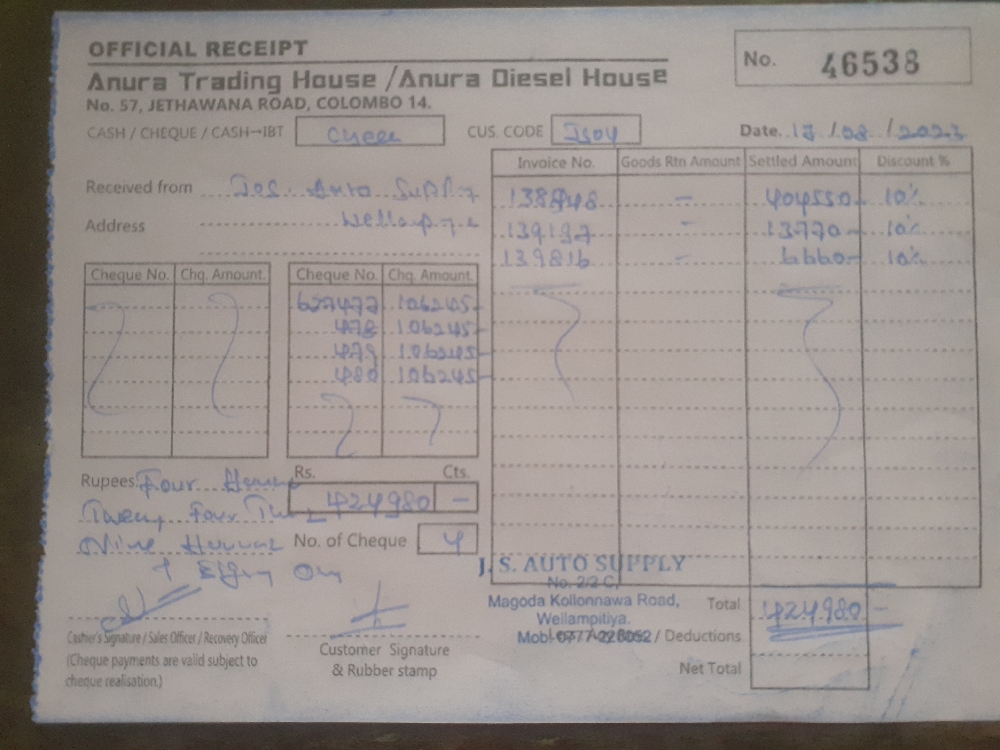 OFFICIAL RECEIPT
No. 46538
Anura Trading House / Anura Diesel House
No. 57, JETHAWANA ROAD, COLOMBO 14.
CASH / CHEQUE / CASH→IBT
CUS. CODE
Date. /08 /2023
Received from J.S. Auto Supply
Address
Invoice No. Goods Rtn Amount Settled Amount Discount %
138848 - 404550- 10%
139197 - 13770- 10%
139816 - 6660- 10%
Cheque No. Chq. Amount.
Cheque No. Chq. Amount.
627477 106245-
478 106245-
479 106245-
480 106245-
Rupees Four
Rs. Cts.
424980 -
Twenty Four
Nine
No. of Cheque 4
J. S. AUTO SUPPLY
No. 2/2 C,
Magoda Kollonnawa Road,
Wellampitiya.
Mobl-0777-228052
Total 424980-
/ Deductions
Net Total
Cashier's Signature / Sales Officer / Recovery Officer
(Cheque payments are valid subject to
cheque realisation.)
Customer Signature
& Rubber stamp